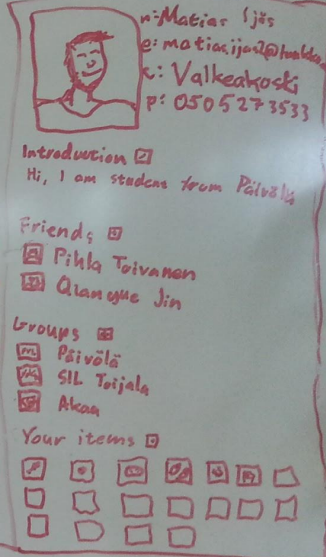 n: Matias Ijäs
e:
c: Valkeakoski
p: 0505273533
Introduction
Hi, I am student from Päivölä
Friends
Pihla Toivanen
Qiangue Jin
Groups
Päivölä
SIL Toijala
Akaa
Your items